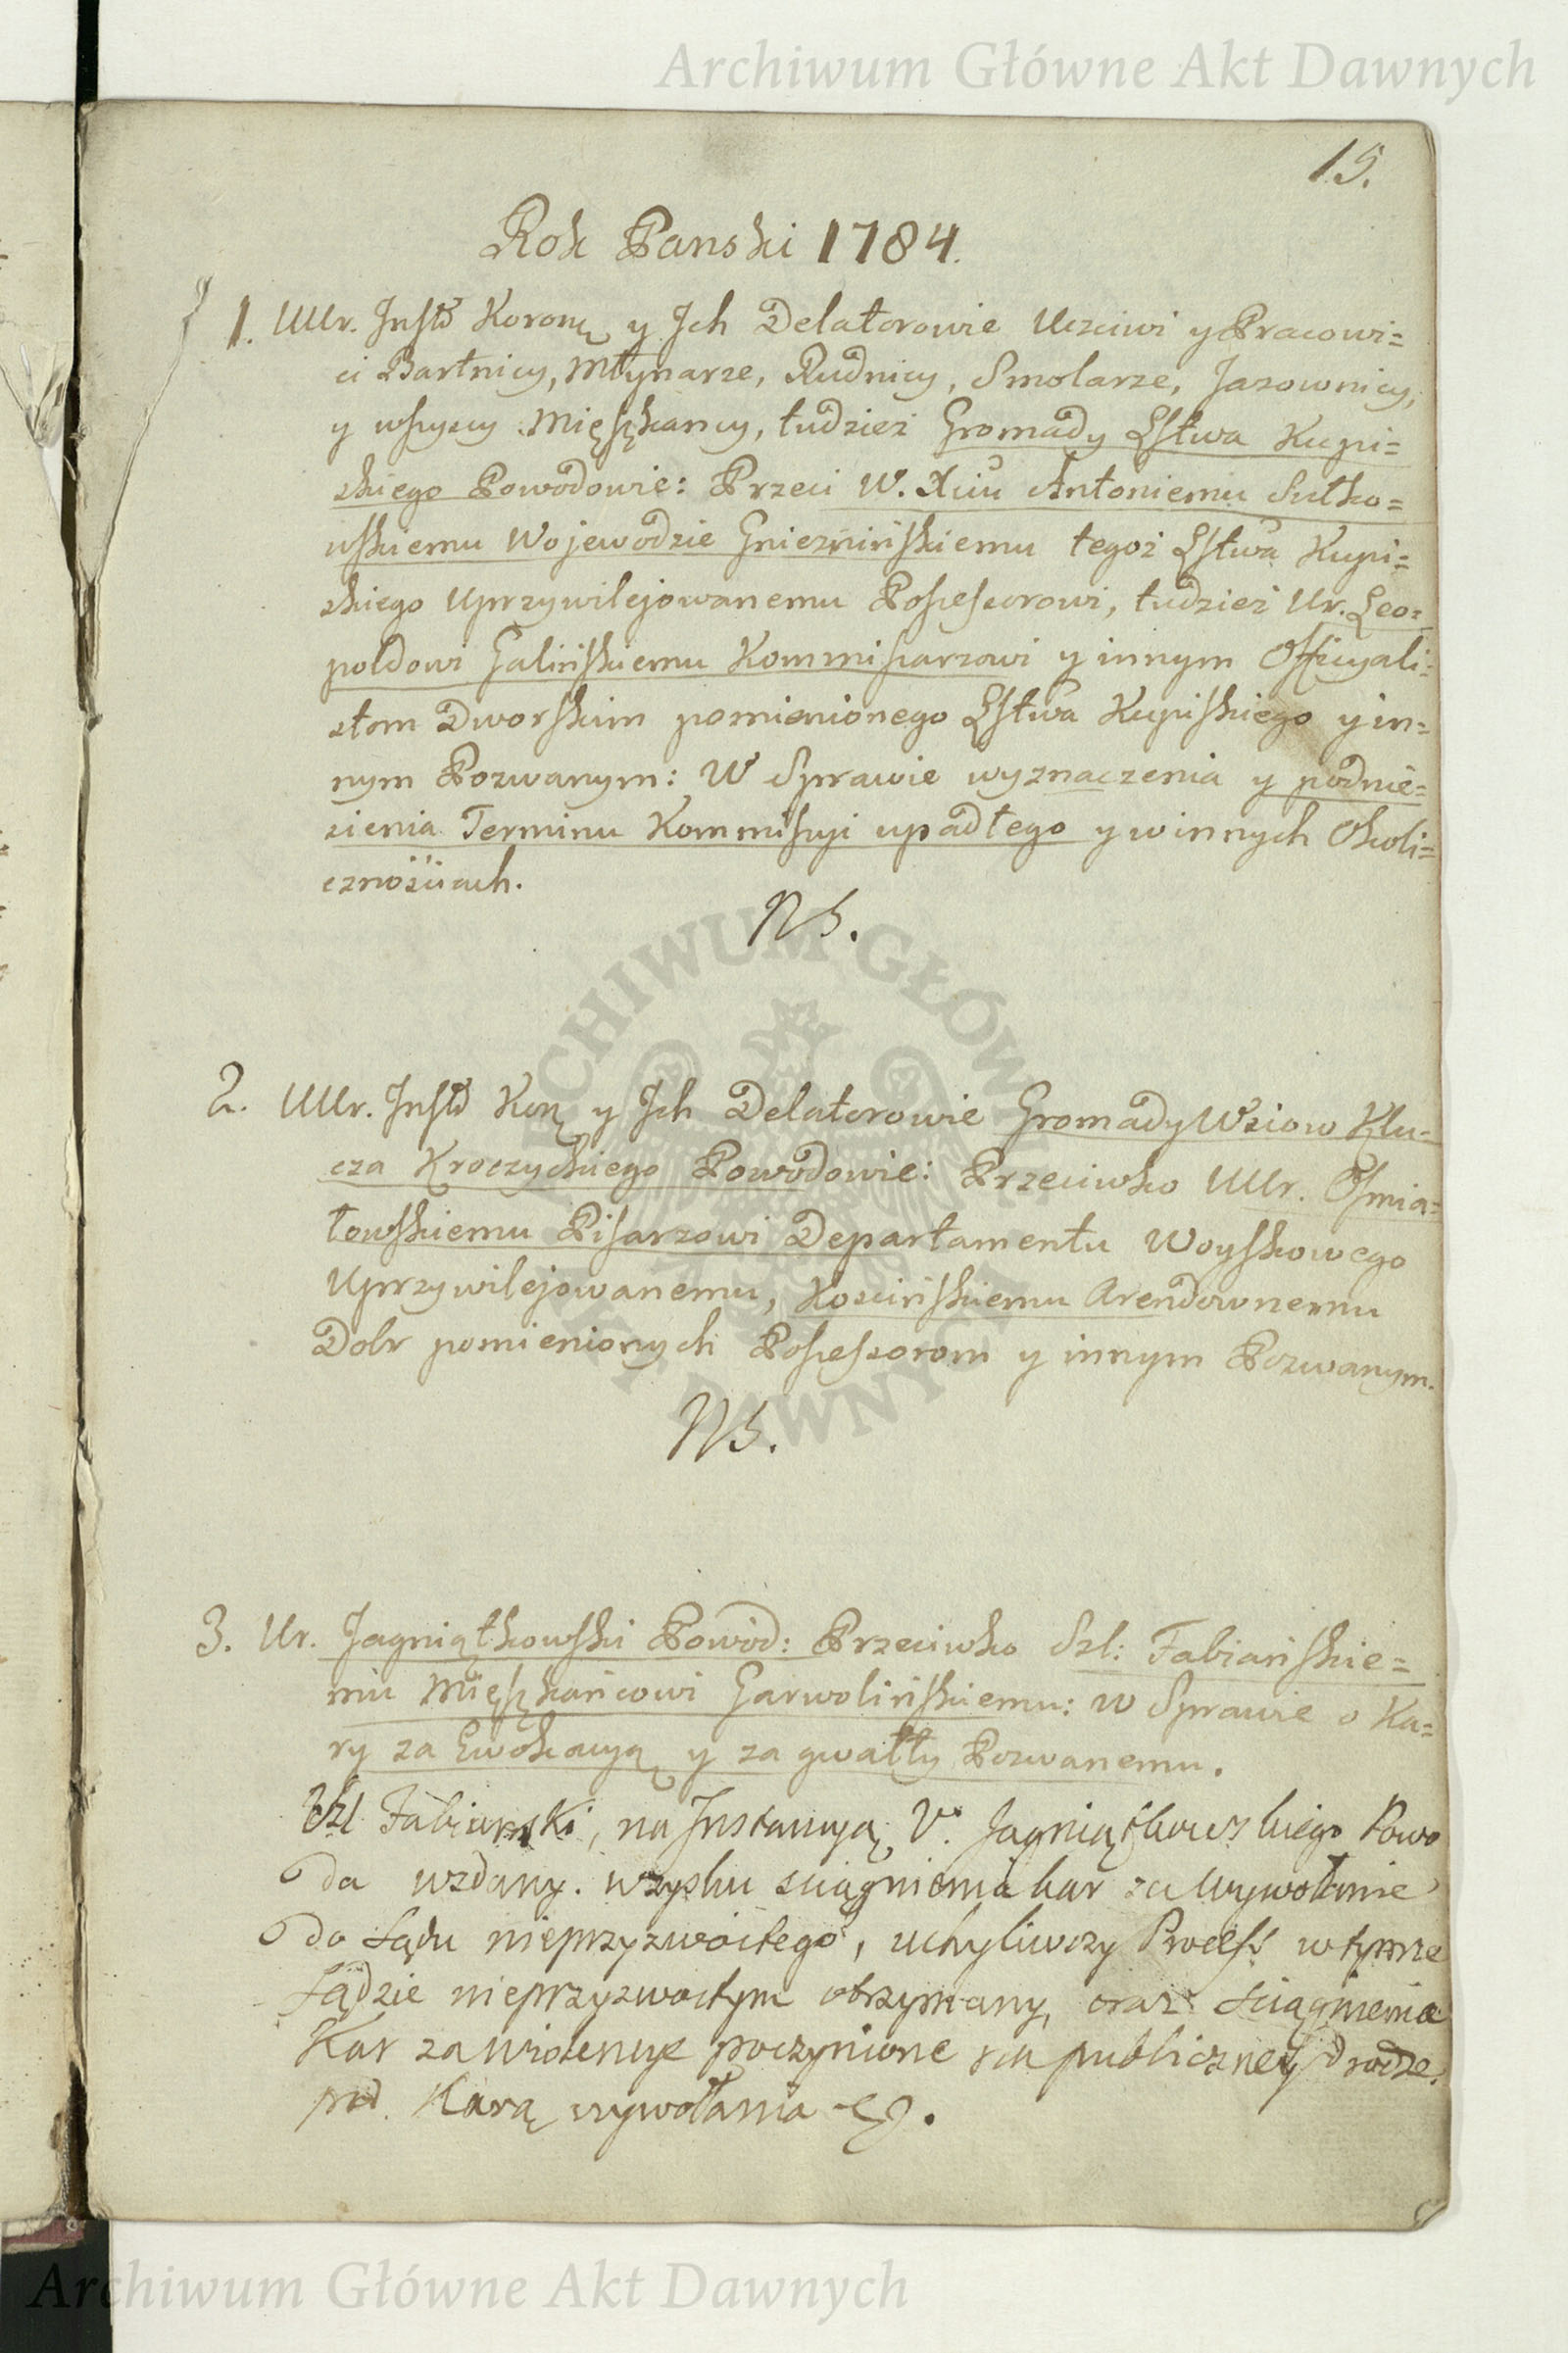 Archiwum Główne Akt Dawnych
15.
Rok Panski 1784.
1. UUr. Insttó Koronę y Ich Delatorowie Uczciwi y Pracowi=
ci Bartnicy, Młynarze, Rudnicy, Smolarze, Jazownicy,
y wszyscy Mięszkancy, tudzież Gromady Lstwa Kupi=
skiego Powodowie: Przeci W. Xciu Antoniemu Sułko=
wskiemu Wojewodzie Gnieznińskiemu tegoż Lstwa Kupi=
skiego Uprzywilejowanemu Possessorowi, tudzież Ur. Leo=
poldowi Galińskiemu Kommissarzowi y innym Officyali=
stom Dworskim pomienionego Lstwa Kupiskiego y in=
nym Pozwanym: W Sprawie wyznaczenia y podnie=
sienia Terminu Kommissyi upadłego y w innych Okoli=
cznościach.
NS.
ARCHIWUM GŁÓWNE AKT DAWNYCH
2. UUr. Insttó Konę y Ich Delatorowie Gromady Wsiow Klu=
cza Kroczyckiego Powodowie: Przeciwko UUr. Osmia=
łowskiemu Pisarzowi Departamentu Woyskowego
Uprzywilejowanemu, Kościńskiemu Arendownemu
Dobr pomienionych Possessorom y innym Pozwanym.
NS.
3. Ur. Jagniątkowski Powód: Przeciwko Szl: Fabiańskie=
mu Mięszkańcowi Garwolińskiemu: w Sprawie o Ka=
ry za Ewokacyą y za gwałty Pozwanemu.
Szl Fabianski, na Instancyą U. Jagniątkowskiego Powo
da wzdany. wzysku sciągnienia kar za wywołanie
do Sądu nieprzyzwoitego, uchyliwszy Process w tymże
Sądzie nieprzyzwoitym otrzymany, oraz sciągnienia
Kar za wiolencye poczynione na publiczney drodze.
pod. Karą wywołania
Archiwum Główne Akt Dawnych